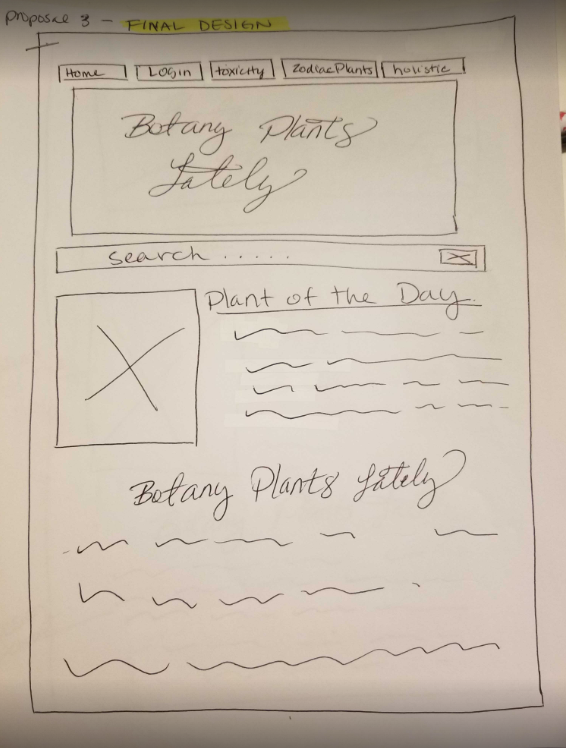 Proposal 3 - FINAL DESIGN
Home Login toxicity Zodiac Plants holistic
Botany Plants
Lately
search ......
Plant of the Day.
Botany Plants Lately